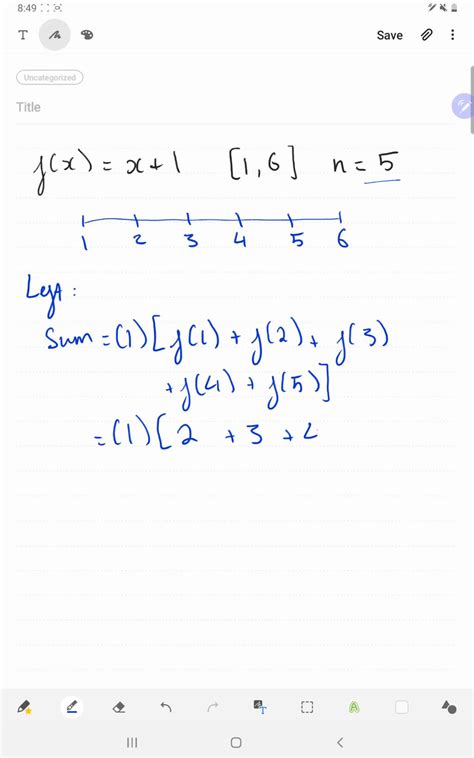 8:49
T Save
Uncategorized
Title
f(x) = x+1 [1,6] n = 5
1 2 3 4 5 6
Left :
Sum = (1)[f(1) + f(2) + f(3)
+ f(4) + f(5)]
= (1)[2 + 3 + 4
T
A